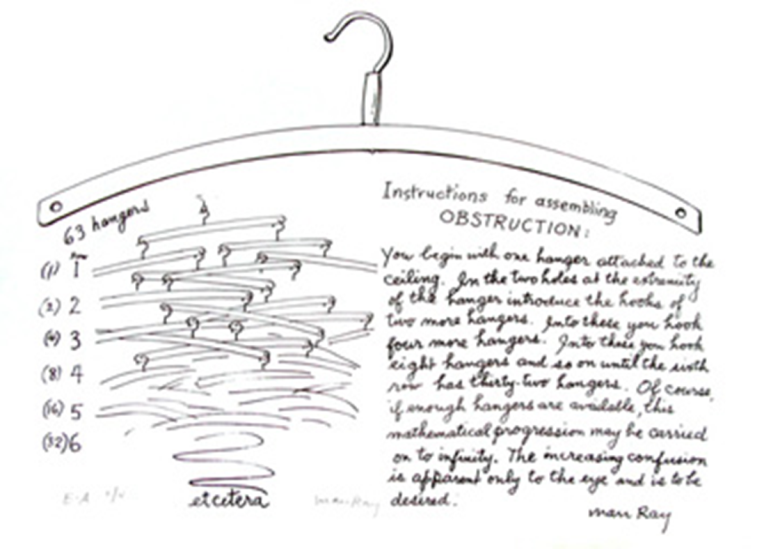 63 hangers
row
(1) 1
(2) 2
(4) 3
(8) 4
(16) 5
(32) 6
etcetera
E-A
man Ray
Instructions for assembling
OBSTRUCTION:
You begin with one hanger attached to the
ceiling. In the two holes at the extremity
of the hanger introduce the hooks of
two more hangers. Into these you hook
four more hangers. Into these you hook
eight hangers and so on until the sixth
row has thirty-two hangers. Of course,
if enough hangers are available, this
mathematical progression may be carried
on to infinity. The increasing confusion
is apparent only to the eye and is to be
desired.
man Ray